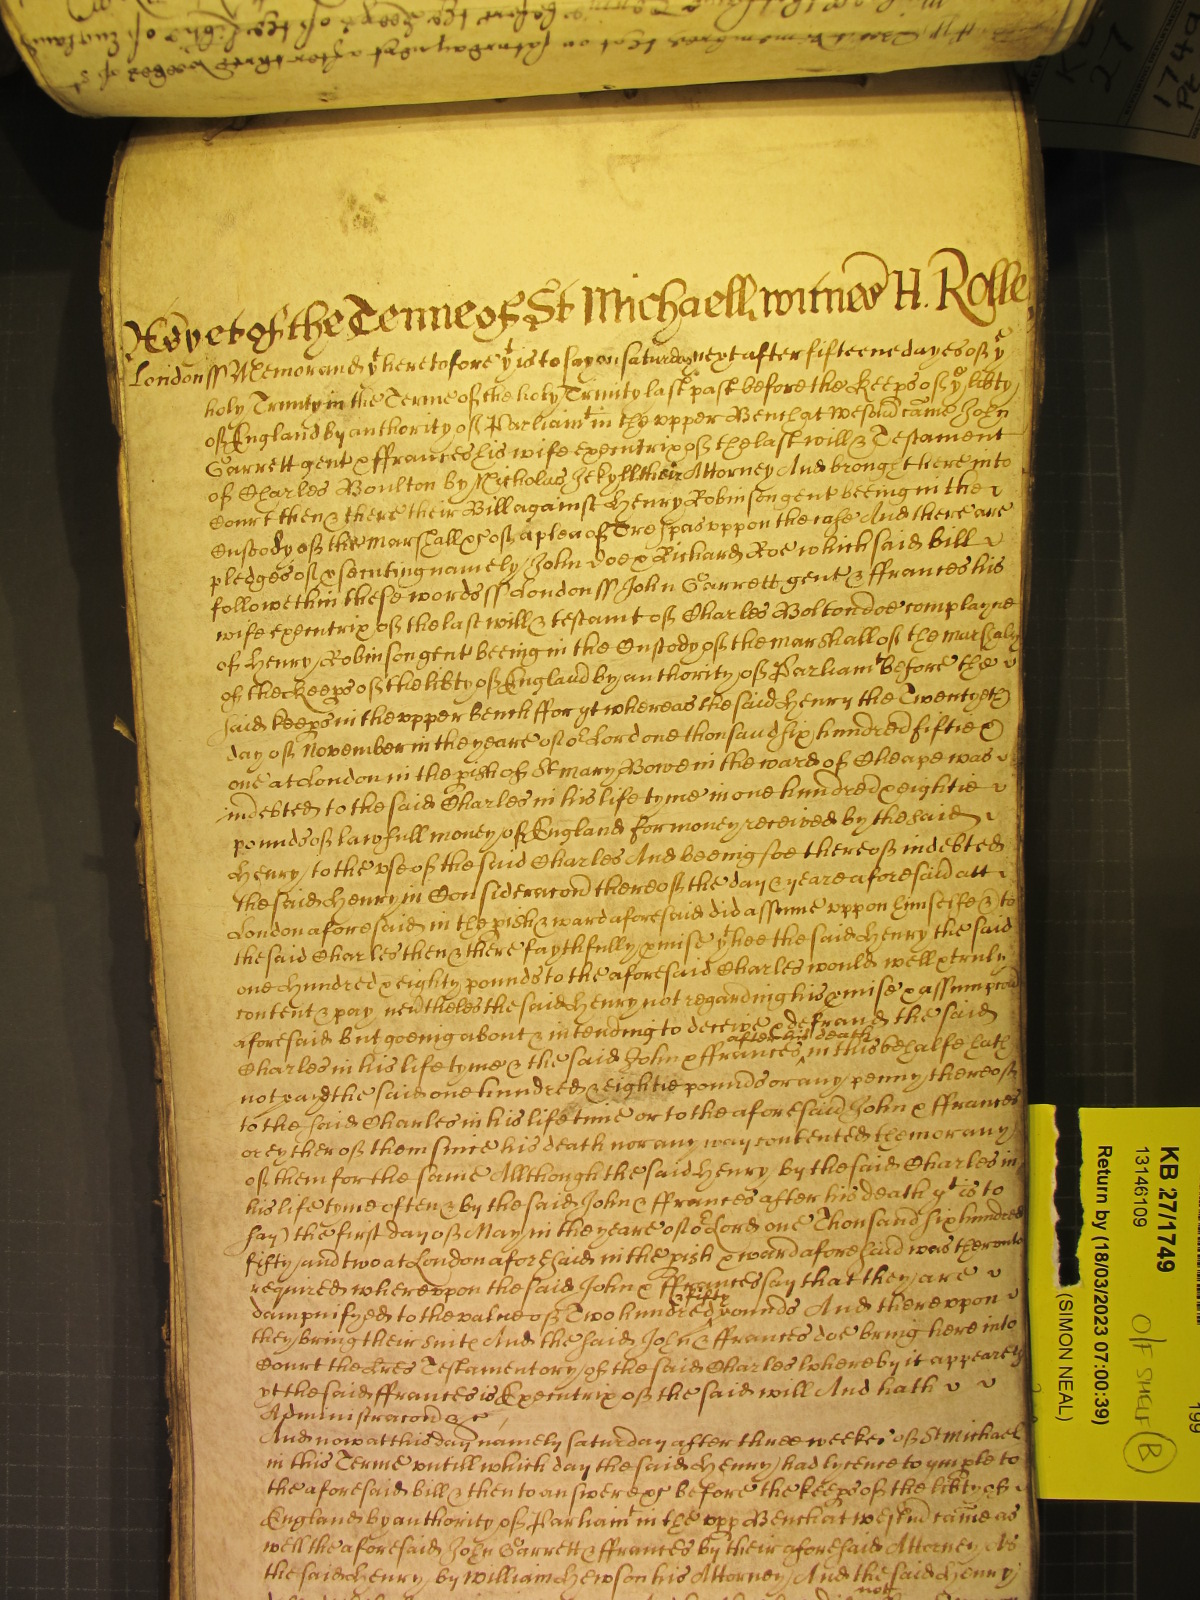 As yet of the Terme of St Michaell witnes H. Rolle
London ss Memorand yt heretofore yt is to say on saturday next after fifteene dayes of ye
holy Trinity in the Terme of the holy Trinity last past before the Keeps of ye libty
of England by authority of Parliamt in the upper Bench at Westm came John
Garrett gent & ffrances his wife executrix of the last will & Testament
of Charles Boulton by Nicholas Jekyll their Attorney And brought here into
Court then & there their Bill against Henry Robinson gent beeing in the
Custody of the marshall &c of a plea of Trespas uppon the case And there are
pledges of psecuting namely John Doe & Richard Roe which said bill
followeth in these words ss London ss John Garrett gent & ffrances his
wife executrix of the last will & testamt of Charles Bolton doe complayne
of Henry Robinson gent beeing in the Custody of the marshall of the marshalsy
of the Keeps of the libty of England by authority of Parliamt before the
said keeps in the upper bench ffor yt whereas the said Henry the Twentyeth
day of November in the yeare of or Lord one thousand six hundred fiftie &
one at London in the pish of St mary Bowe in the ward of Cheape was
indebted to the said Charles in his life tyme in one hundred & eightie
pounds of lawfull money of England for money received by the said
Henry to the use of the said Charles And beeing soe thereof indebted
the said Henry in Consideracon thereof the day & yeare aforesaid att
London aforesaid in the pish & ward aforesaid did assume uppon himselfe & to
the said Charles then & there faythfully pmise yt hee the said Henry the said
one hundred & eighty pounds to the aforesaid Charles would well & truly
content & pay nevtheles the said Henry not regarding his pmise & assumpcon
aforesaid but goeing about & intending to deceive & defraud the said
Charles in his life tyme & the said John & ffrances after his death in this behalfe hath
not payd the said one hundred & eightie pounds or any penny thereof
to the said Charles in his life time or to the aforesaid John & ffrances
or eyther of them since his death nor any way contented them or any
of them for the same Allthough the said Henry by the said Charles in
his life tyme often & by the said John & ffrances after his death yt is to
say) the first day of May in the yeare of or Lord one Thousand six hundred
fifty and two at London aforesaid in the pish & ward aforesaid was thereunto
required whereupon the said John & ffrances say that they are
dampnifyed to the value of Two hundred & fifty pounds And thereuppon
they bring their suite And the said John & ffrances doe bring here into
Court the Lres Testamentory of the said Charles whereby it appeareth
yt the said ffrances is Executrix of the said will And hath
Administracon &c
And now at this day namely saturday after three weekes of St Michael
in this Terme untill which day the said Henry had lycence to imple to
the aforesaid bill & then to answere &c before the keeps of the libty of
England by authority of Parliamt in the upp Bench at Westm came as
well the aforesaid John Garrett & ffrances by their aforesaid Attorney As
the said Henry by William Hewson his Attorney And the said Henry
not
KB 27/1749
13146109
Return by (18/03/2023 07:00:39)
(SIMON NEAL)
O/F SHELF B
199
KB
27
1749